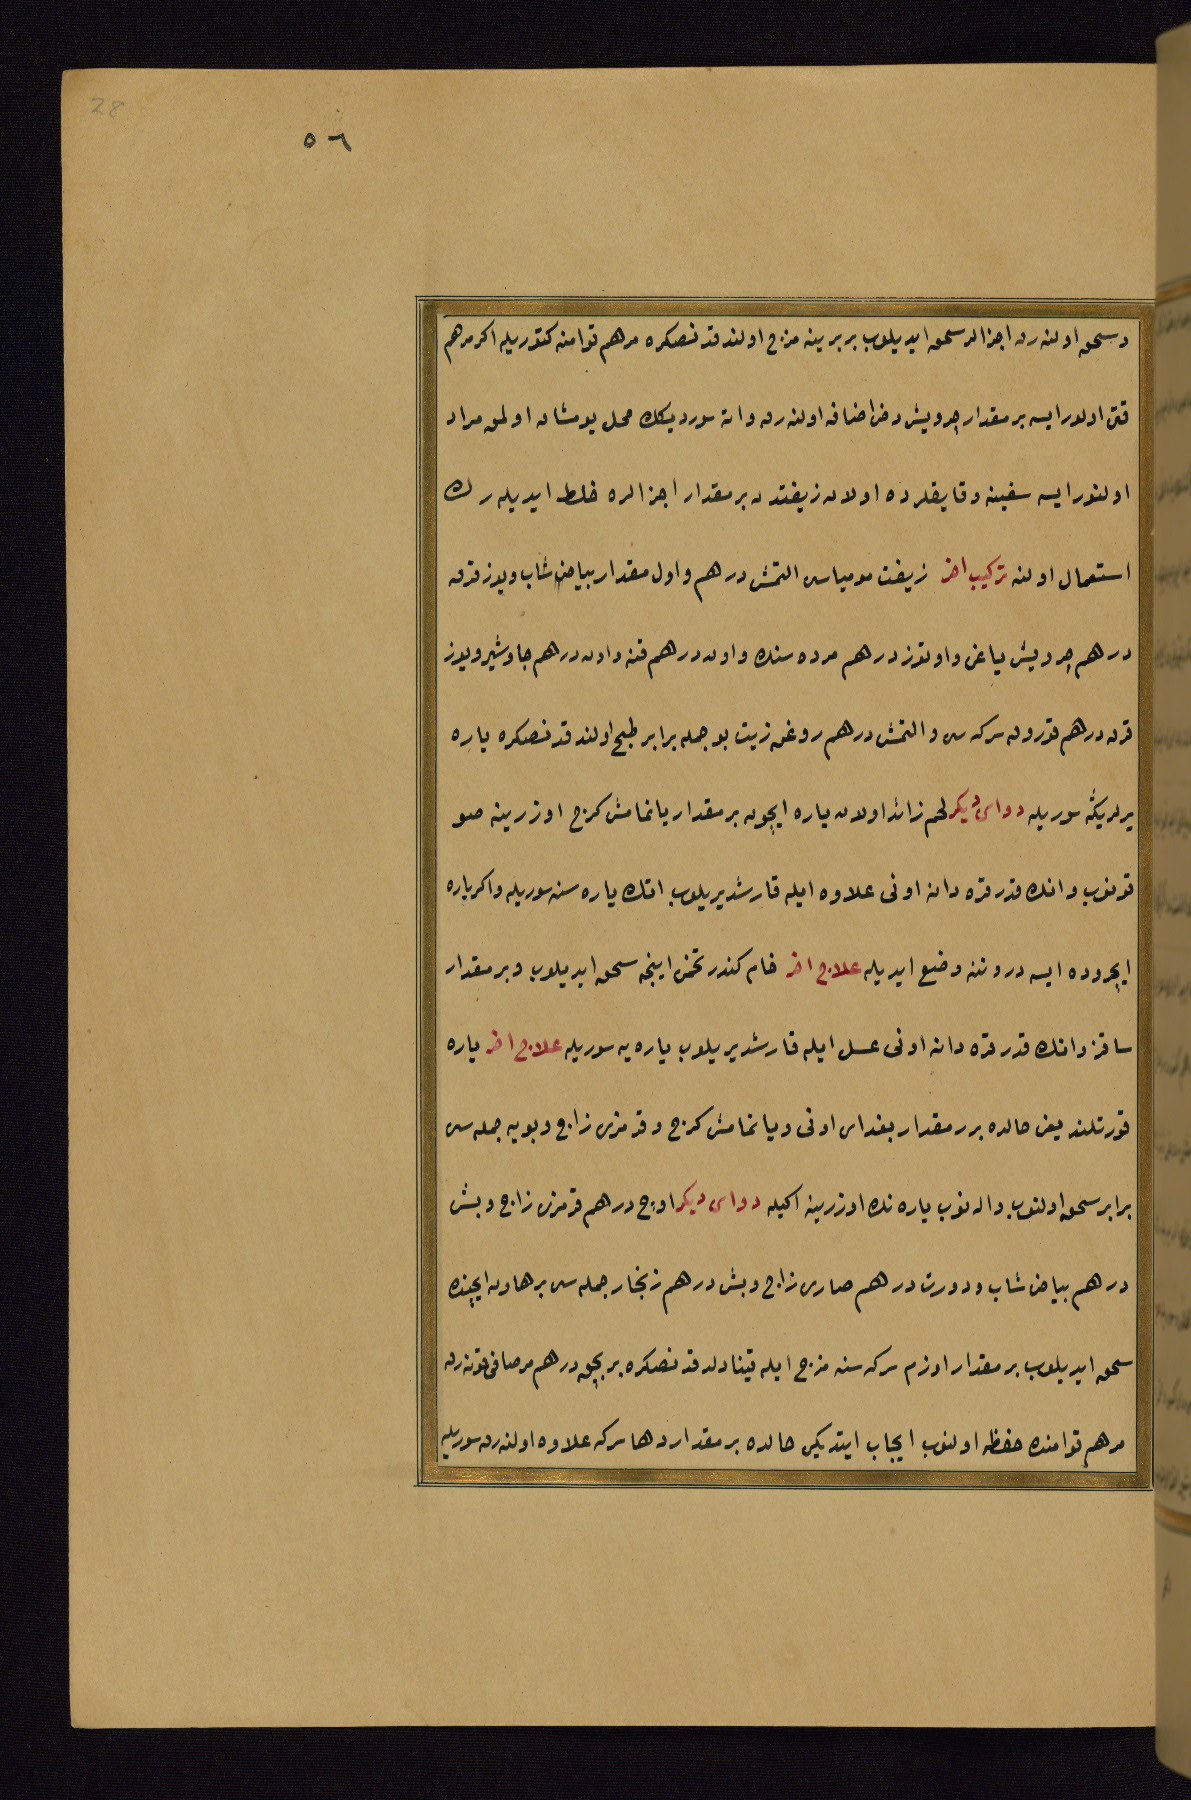 28
٥٦
و سحق اولنه رق اجزالر سحق ايديلوب بربرينه مزج اولندقدنصكره مرهم قوامنه كتوريله اكر مرهم
قتى اولورايسه بر مقدار چرويش دخى اضافه اولنه رق وات سورديكك محل يومشاق اولمق مراد
اولنورايسه سفينه و قايقلرده اولان زيفتدن بر مقدار اجزالره خلط ايديله رك
استعمال اولنه تركيب اخر زيفت موميياسى التمش درهم و اول مقدار بياض شاب و يوز قرق
درهم چرويش ياغى و اوتوز درهم مرده سنك و اون درهم قنه و اون درهم جاوشير و يوز
قرق درهم قورق سركه سى و التمش درهم روغن زيت بو جمله برابر طبخ اولندقدنصكره ياره
يرلرينه سوريله دواى ديكر لحم زائد اولان ياره ايچون بر مقدار يانمامش كرج اوزرينه صو
قونوب و انك قدر قره دان اونى علاوه ايله قارشديريلوب انك ياره سنه سوريله و اكر ياره
ايچروده ايسه دروننه وضع ايديله علاج اخر خام كندر تخمى اينجه سحق ايديلوب و بر مقدار
ساقز و انك قدر قره دان اونى عسل ايله قارشديريلوب ياره يه سوريله علاج اخر ياره
قورتلنديغى حالده برر مقدار بغداى اونى و يانمامش كرج و قرمزى زاج و بويه جمله سى
برابر سحق اولنوب و النوب ياره نك اوزرينه اكيله دواى ديكر اوچ درهم قرمزى زاج و بش
درهم بياض شاب و دورت درهم صارى زاج و بش درهم زنجار جمله سى بر هاون ايچنده
سحق ايديلوب بر مقدار اوزم سركه سنه مزج ايله قينادلدقدنصكره بر بچق درهم مرصافى قونه رق
مرهم قوامنده حفظ اولنوب ايجاب ايتديكى حالده بر مقدار دها سركه علاوه اولنه رق سوريله